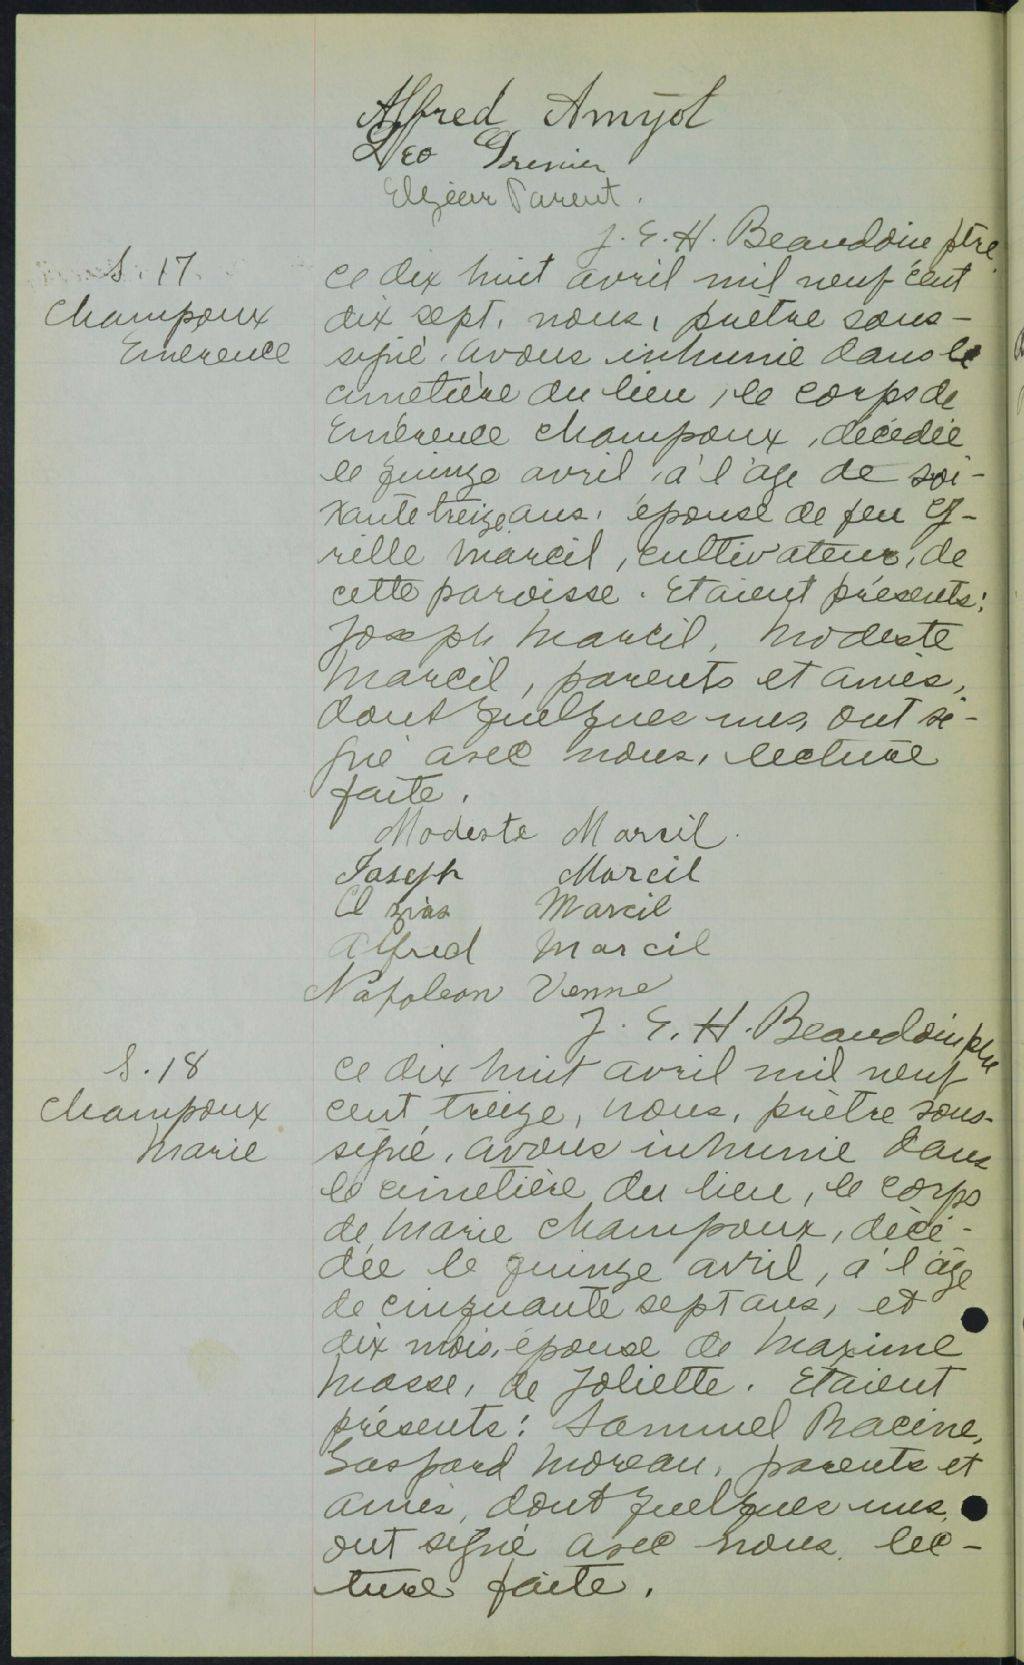 Alfred Amyot
Léo Grenier
Elzéar Parent.
J. E. H. Beaudoin ptre.
S. 17
Champoux
Emérence
ce dix huit avril mil neuf cent
dix sept, nous, prêtre sous-
signé, avons inhumé dans le
cimetière du lieu, le corps de
Emérence Champoux, décédée
le quinze avril, à l'âge de soi-
xante treize ans, épouse de feu Cy-
rille Marcil, cultivateur, de
cette paroisse. Etaient présents:
Joseph Marcil, Modeste
Marcil, parents et amis,
dont quelques uns, ont si-
gné avec nous, lecture
faite.
Modeste Marcil.
Joseph Marcil
Ozias Marcil
Alfred Marcil
Napoleon Venne
J. E. H. Beaudoin ptre
S. 18
Champoux
Marie
ce dix huit avril mil neuf
cent treize, nous, prêtre sous-
signé, avons inhumé dans
le cimetière du lieu, le corps
de Marie Champoux, décé-
dée le quinze avril, à l'âge
de cinquante sept ans, et
dix mois, épouse de Maxime
Masse, de Joliette. Etaient
présents: Samuel Racine,
Gaspard Moreau, parents et
amis, dont quelques uns,
ont signé avec nous, lec-
ture faite.